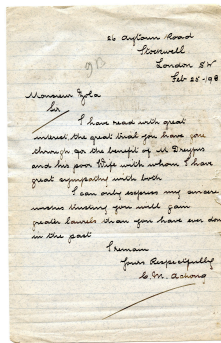 26 Aytoun Road
Stockwell
London S.W
Feb 25-198
Monsieur Zola
Sir
I have read with great
interest the great trial you have gone
through for the benefit of M Dreyfus
and his poor Wife with whom I have
great sympathy with both
I can only express my sincere
wishes trusting you will gain
greater laurels than you have ever done
in the past
I remain
Yours Respectfully
C. M. Achong